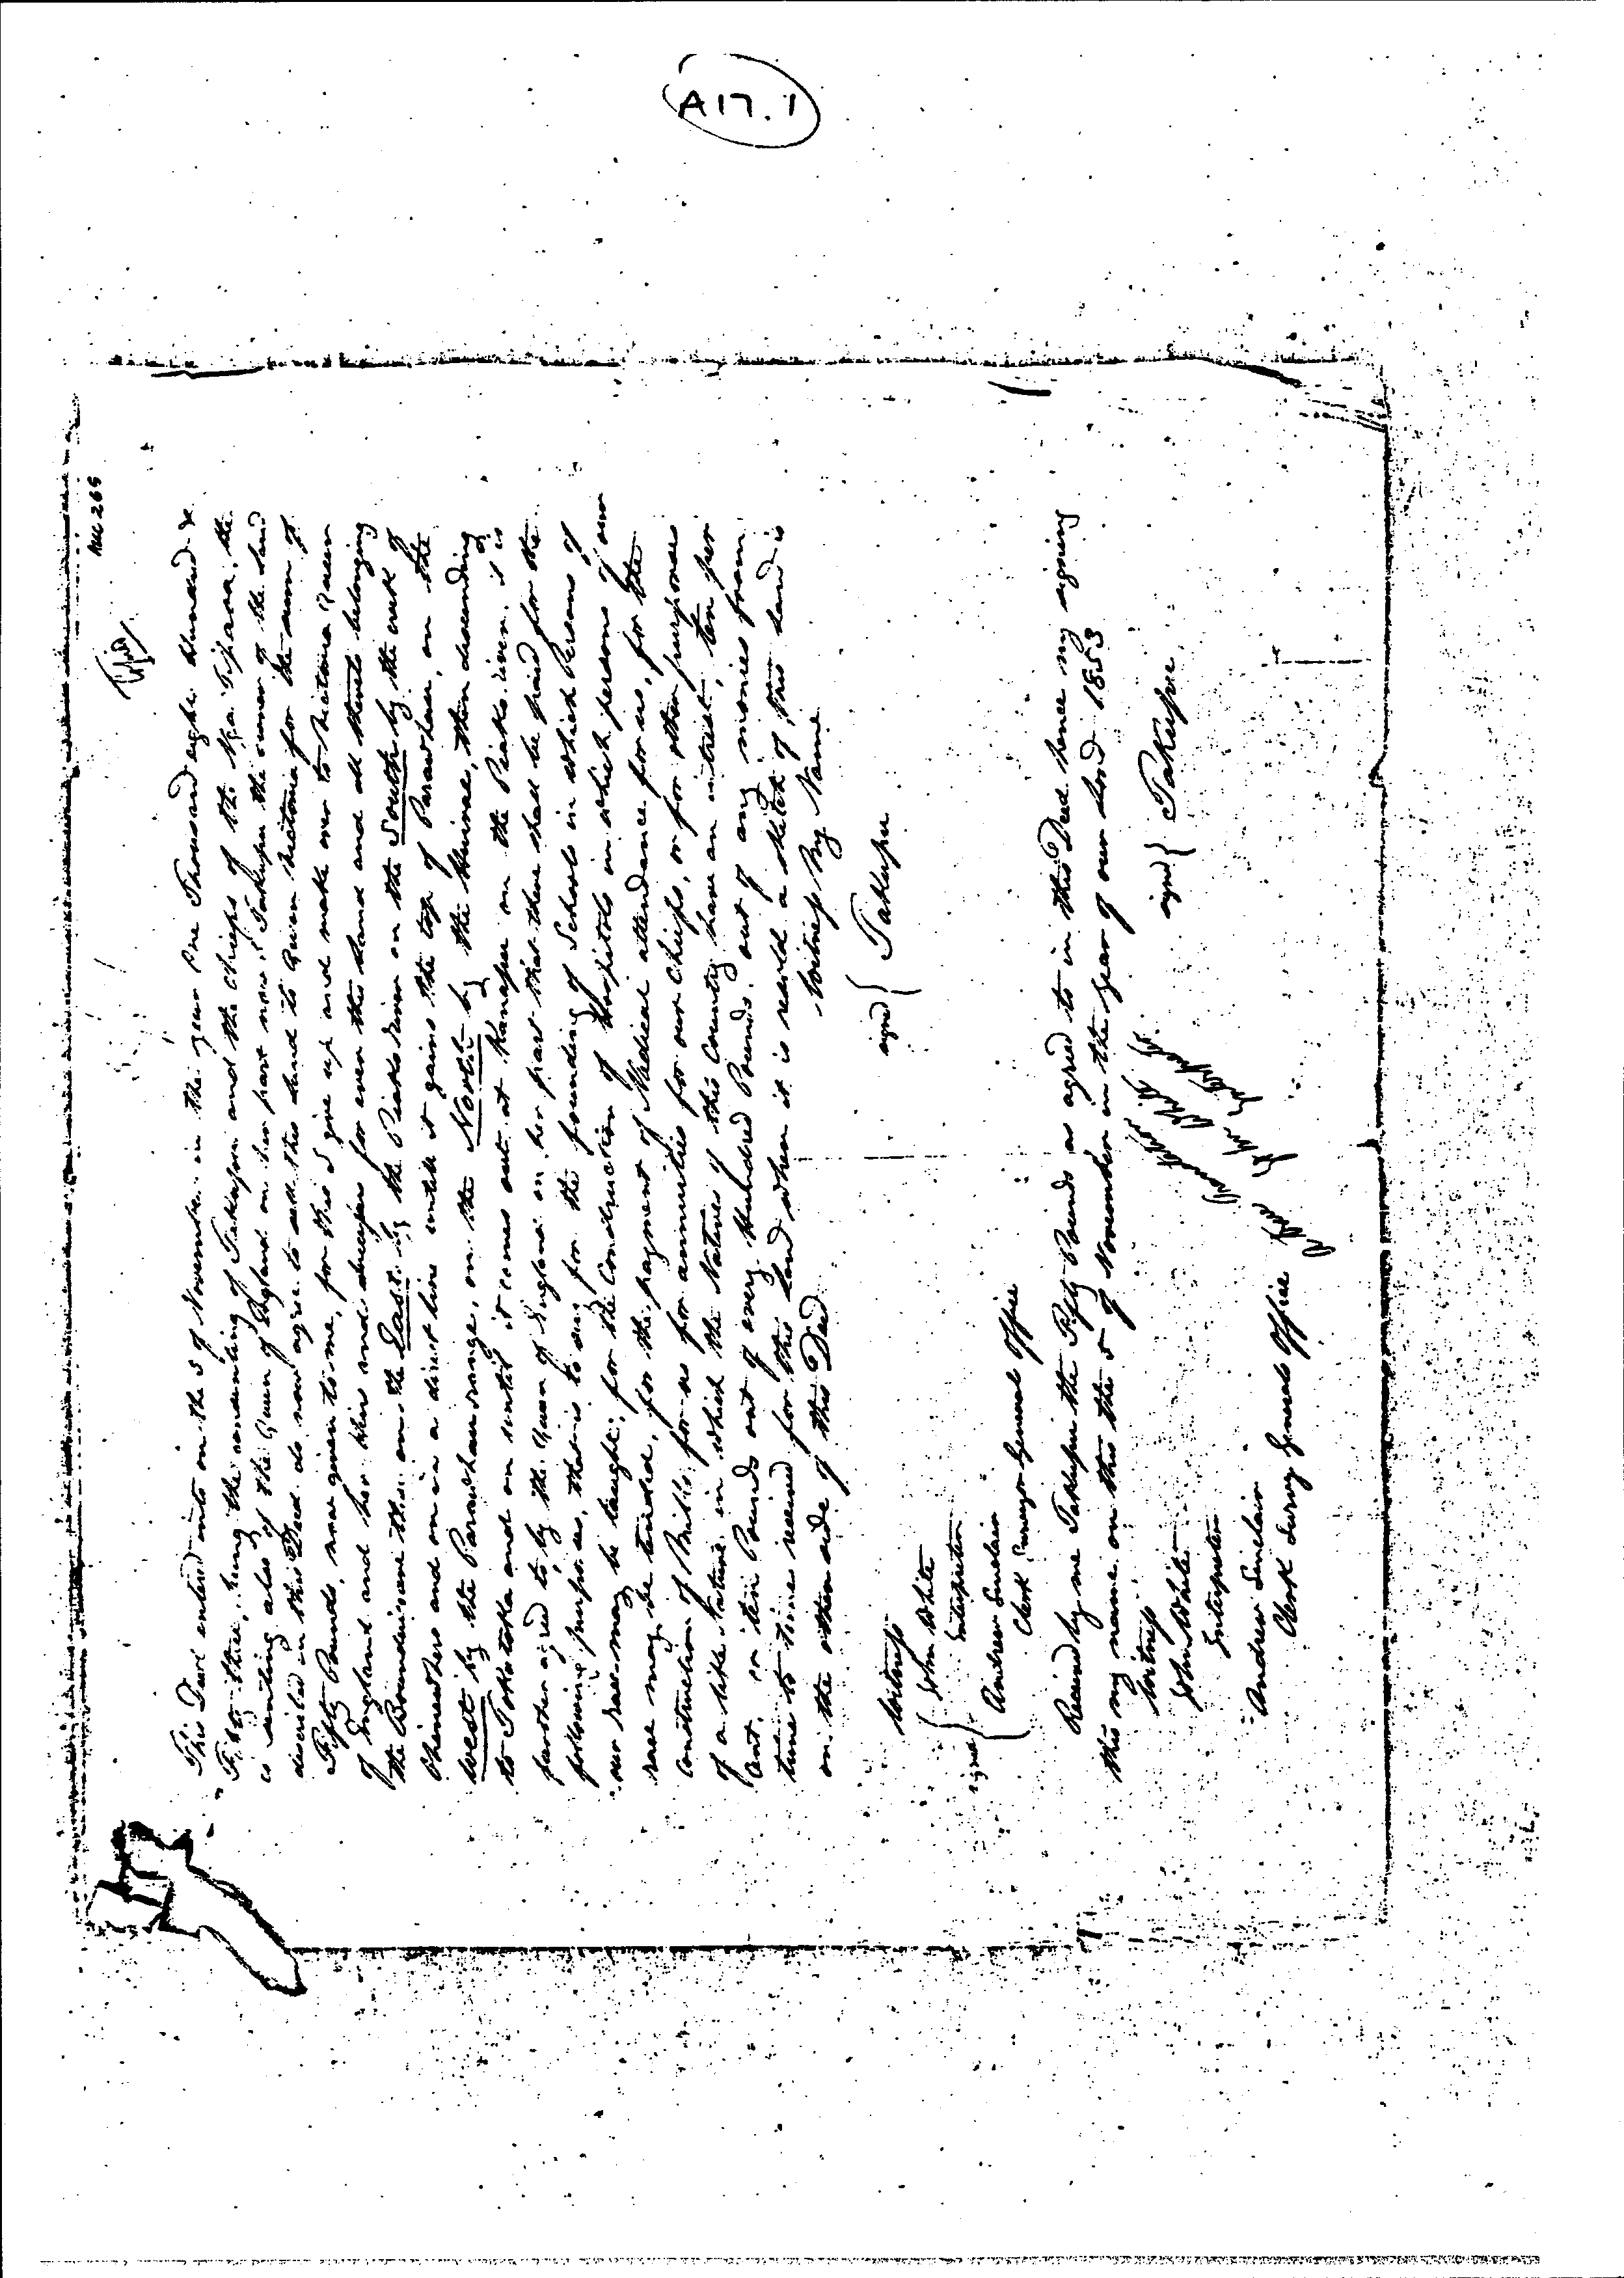 A17.1
AUC 265
This Deed entered into on the 5 of November in the year One Thousand eight hundred &
Fifty three, being the consenting of Takupu and the chiefs of the Nga Tipaoa, the
consenting also of the Queen of England on her part now, Takupu the owner of the land
described in this Deed do now agree to sell this land to Queen Victoria for the sum of
Fifty Pounds, now given to me, for this I give up and make over to Victoria Queen
of England and her heirs and assigns for ever the land and all thereto belonging
the Boundaries are these on the East by the Piako River on the South by the creek of
Ohinewhero and on in a direct line until it gains the top of Parawhau, on the
West by the Parawhau range, on the North by the Huirau, then descending
to Tokotoko and on until it comes out at Hamapu on the Piako river. it is
further agreed to by the Queen of England on her part that there shall be paid for the
following purposes, that is to say for the founding of Schools in which Persons of
our race may be taught; for the Construction of Hospitals in which persons of our
race may be tended, for the payment of Medical attendance for us, for the
construction of Mills; for us for annuities for our Chiefs, or for other purposes
of a like nature in which the Natives of this Country have an intrest, ten per
Cent, or ten Pounds out of every Hundred Pounds. out of any monies from
time to time received for this land when it is resold a sketch of this land is
on the other side of this Deed
Witness My Name
signed { Takupu
Witness
signed { John White
Interpreter
Andrew Sinclair
Clerk Surveyor General Office
Received by me Takupu the Fifty Pounds as agred to in this Deed hence my signing
this my name on this the 5 of November in the year of our Lord 1853
signed { Takupu
Witness
John White
Interpreter
Andrew Sinclair
Clerk Survey General Office
John White